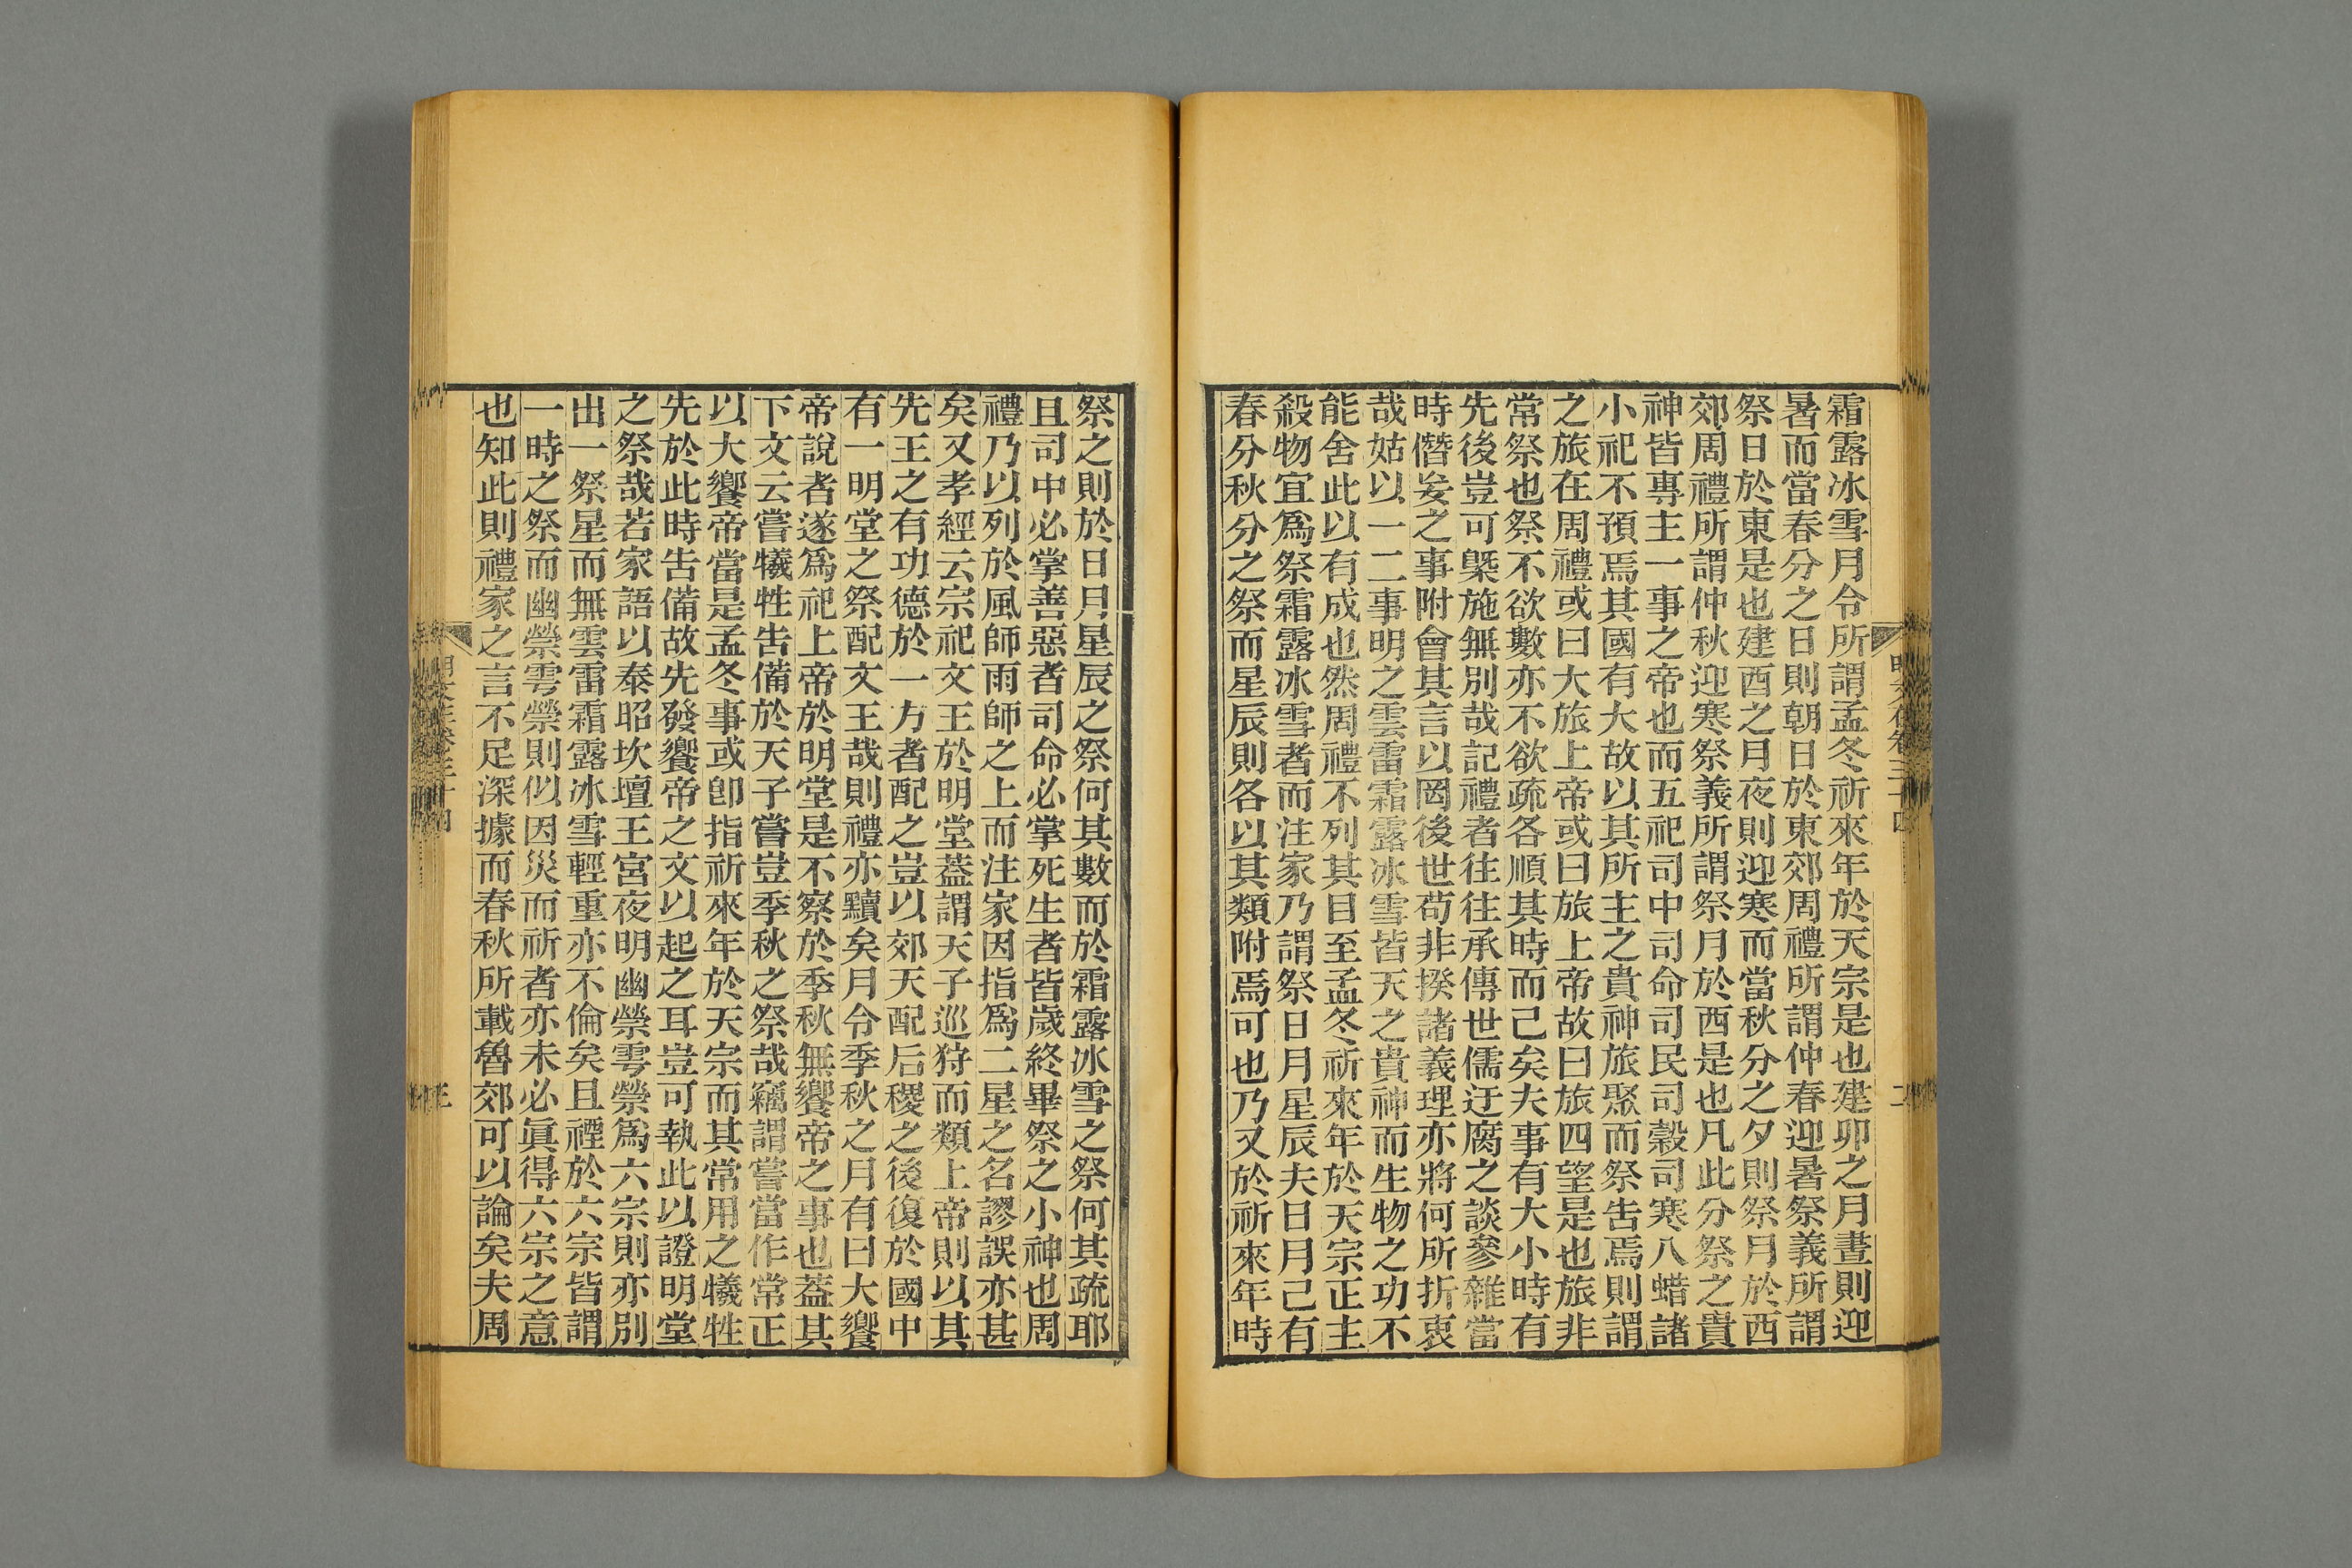 霜露冰雪月令所謂孟冬祈來年於天宗是也建卯之月晝則迎
暑而當春分之日則朝日於東郊周禮所謂仲春迎暑祭義所謂
祭日於東是也建酉之月夜則迎寒而當秋分之夕則祭月於西
郊周禮所謂仲秋迎寒祭義所謂祭月於西是也凡此分祭之貴
神皆專主一事之帝也而五祀司中司命司民司穀司寒八蜡諸
小祀不預焉其國有大故以其所主之貴神旅聚而祭告焉則謂
之旅在周禮或曰大旅上帝或曰旅上帝故曰旅四望是也旅非
常祭也祭不欲數亦不欲疏各順其時而己矣夫事有大小時有
先後豈可槩施無別哉記禮者往往承傳世儒迂腐之談參雜當
時僭妄之事附會其言以罔後世苟非揆諸義理亦將何所折衷
哉姑以一二事明之雲雷霜露冰雪皆天之貴神而生物之功不
能舍此以有成也然周禮不列其目至孟冬祈來年於天宗正主
殺物宜爲祭霜露冰雪者而注家乃謂祭日月星辰夫日月己有
春分秋分之祭而星辰則各以其類附焉可也乃又於祈來年時
祭之則於日月星辰之祭何其數而於霜露冰雪之祭何其疏耶
且司中必掌善惡者司命必掌死生者皆歲終畢祭之小神也周
禮乃以列於風師雨師之上而注家因指爲二星之名謬誤亦甚
矣又孝經云宗祀文王於明堂蓋謂天子巡狩而類上帝則以其
先王之有功德於一方者配之豈以郊天配后稷之後復於國中
有一明堂之祭配文王哉則禮亦黷矣月令季秋之月有曰大饗
帝說者遂爲祀上帝於明堂是不察於季秋無饗帝之事也蓋其
下文云嘗犧牲告備於天子嘗豈季秋之祭哉竊謂嘗當作常正
以大饗帝當是孟冬事或卽指祈來年於天宗而其常用之犧牲
先於此時告備故先發饗帝之文以起之耳豈可執此以證明堂
之祭哉若家語以泰昭坎壇王宮夜明幽禜雩禜爲六宗則亦別
出一祭星而無雲雷霜露冰雪輕重亦不倫矣且禋於六宗皆謂
一時之祭而幽禜雩禜則似因災而祈者亦未必眞得六宗之意
也知此則禮家之言不足深據而春秋所載魯郊可以論矣夫周